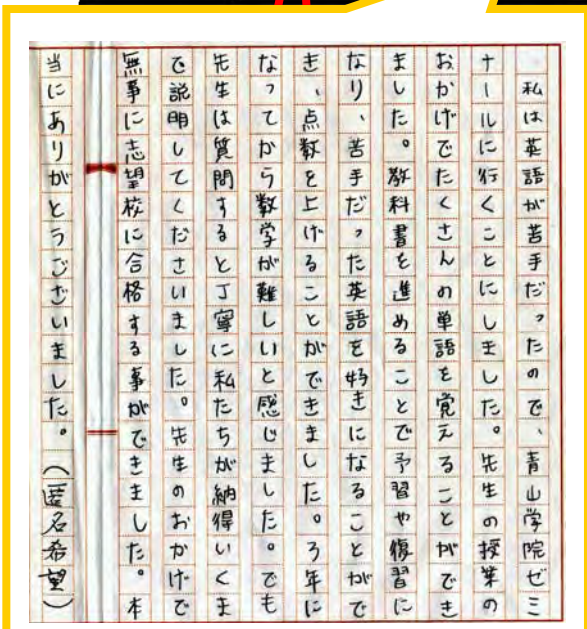 私は英語が苦手だったので、青山学院ゼミ
ナールに行くことにしました。先生の授業の
おかげでたくさんの単語を覚えることができ
ました。教科書を進めることで予習や復習に
なり、苦手だった英語を好きになることがで
き、点数を上げることができました。3年に
なってから数学が難しいと感じました。でも
先生は質問すると丁寧に私たちが納得いくま
で説明してくださいました。先生のおかげで
無事に志望校に合格する事ができました。本
当にありがとうございました。(匿名希望)